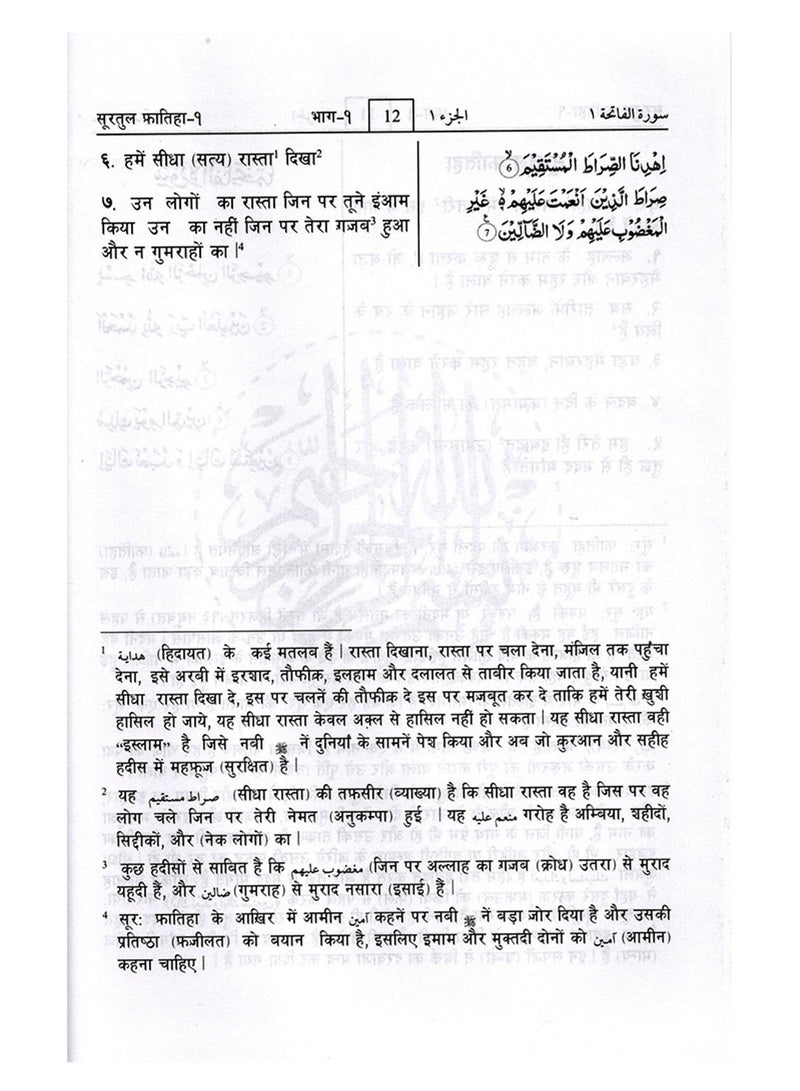 सूरतुल फ़ातिहा-१ भाग-१ 12 الجزء ١ سورة الفاتحة ١
६. हमें सीधा (सत्य) रास्ता¹ दिखा²
اِهْدِنَا الصِّرَاطَ الْمُسْتَقِيْمَ ۙ6
७. उन लोगों का रास्ता जिन पर तूने इंआम
किया उन का नहीं जिन पर तेरा गजब³ हुआ
और न गुमराहों का |⁴
صِرَاطَ الَّذِيْنَ اَنْعَمْتَ عَلَيْهِمْ ۙ غَيْرِ
الْمَغْضُوْبِ عَلَيْهِمْ وَلَا الضَّآلِّيْنَ 7
¹ هداية (हिदायत) के कई मतलब हैं | रास्ता दिखाना, रास्ता पर चला देना, मंजिल तक पहुँचा
देना, इसे अरबी में इरशाद, तौफीक़, इलहाम और दलालत से ताबीर किया जाता है, यानी हमें
सीधा रास्ता दिखा दे, इस पर चलनें की तौफीक़ दे इस पर मजबूत कर दे ताकि हमें तेरी खुशी
हासिल हो जाये, यह सीधा रास्ता केवल अक़्ल से हासिल नहीं हो सकता | यह सीधा रास्ता वही
“इस्लाम” है जिसे नबी ﷺ नें दुनियाँ के सामनें पेश किया और अब जो क़ुरआन और सहीह
हदीस में महफूज (सुरक्षित) है |
² यह صراط مستقيم (सीधा रास्ता) की तफ़सीर (व्याख्या) है कि सीधा रास्ता वह है जिस पर वह
लोग चले जिन पर तेरी नेमत (अनुकम्पा) हुई | यह منعم عليه गरोह है अम्बिया, शहीदों,
सिद्दीकों, और (नेक लोगों) का |
³ कुछ हदीसों से साबित है कि مغضوب عليهم (जिन पर अल्लाह का गजब (क्रोध) उतरा) से मुराद
यहूदी हैं, और ضالين (गुमराह) से मुराद नसारा (इसाई) हैं |
⁴ सूर: फातिहा के आखिर में आमीन آمين कहनें पर नबी ﷺ नें बड़ा जोर दिया है और उसकी
प्रतिष्ठा (फजीलत) को बयान किया है, इसलिए इमाम और मुक्तदी दोनों को آمين (आमीन)
कहना चाहिए |